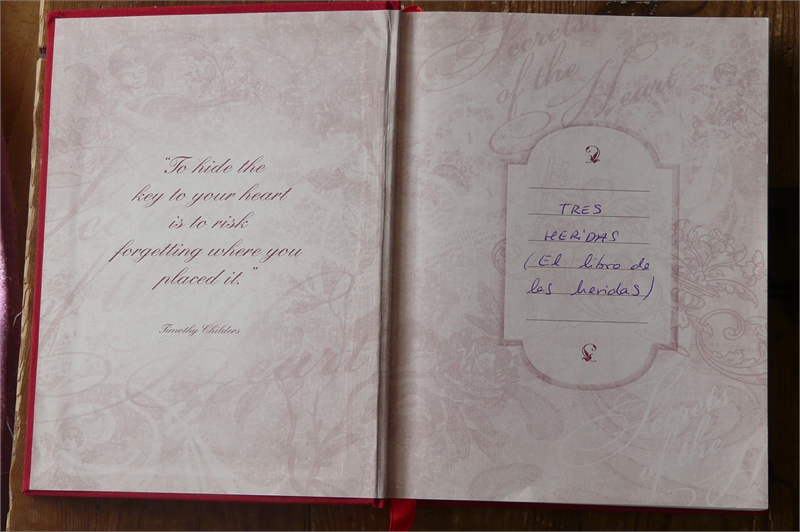 “To hide the
key to your heart
is to risk
forgetting where you
placed it.”
Timothy Childers
Secrets
of the
Heart
TRES
HERIDAS
(El libro de
las heridas)
Secrets
of the